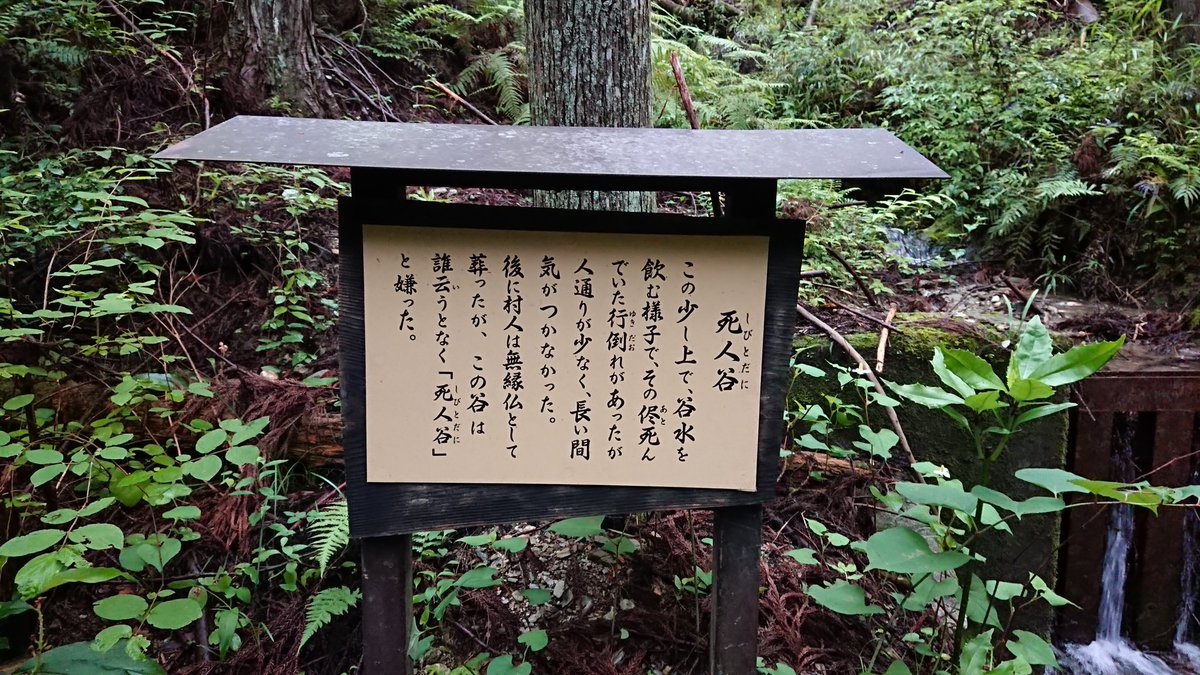 しびとだに
死人谷
この少し上で、谷水を
飲む様子で、その侭死ん
あと
でいた行倒れがあったが
ゆきだお
人通りが少なく、長い間
気がつかなかった。
後に村人は無縁仏として
葬ったが、この谷は
誰云うとなく「死人谷」
い
しびとだに
と嫌った。